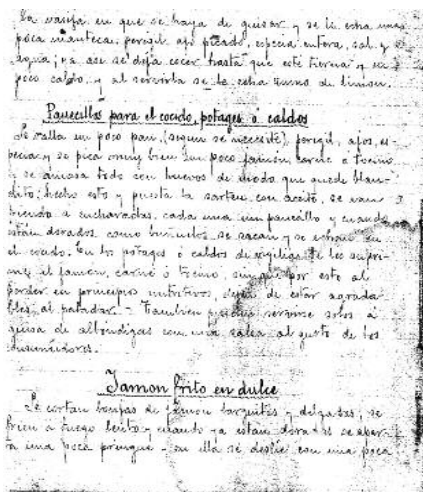 la vasija en que se haya de guisar y se le echa una
poca manteca, peregil, ajo picado, especia entera, sal y
agua; ya asi se deja cocer hasta que esté tierna y en
poco caldo, y al servirla se le echa zumo de limon.
Panecillos para el cocido, potages ó caldos
Se ralla un poco pan, (segun se necesite), peregil, ajos, es-
pecia y se pica muy bien un poco jamon, carne o tocino
y se amasa todo con huevos de modo que quede blan-
dito; hecho esto y puesta la sarten con aceite, se van
friendo a cucharadas, cada una un panecillo y cuando
estan dorados como buñuelos se sacan y se echan en
el cocido. En los potages o caldos de vigilia se les supri-
me el jamon, carne ó tocino, sin que por esto al
perder en principios nutritivos, dejen de estar agrada-
bles al paladar. - Tambien pueden servirse solos a
guisa de albondigas con una salsa al gusto de los
consumidores.
Jamon frito en dulce
Se cortan lonjas de jamon larguitas y delgadas, se
frien a fuego lento y cuando ya estan doradas se
a una poca pringue en ella se deslie con una poca